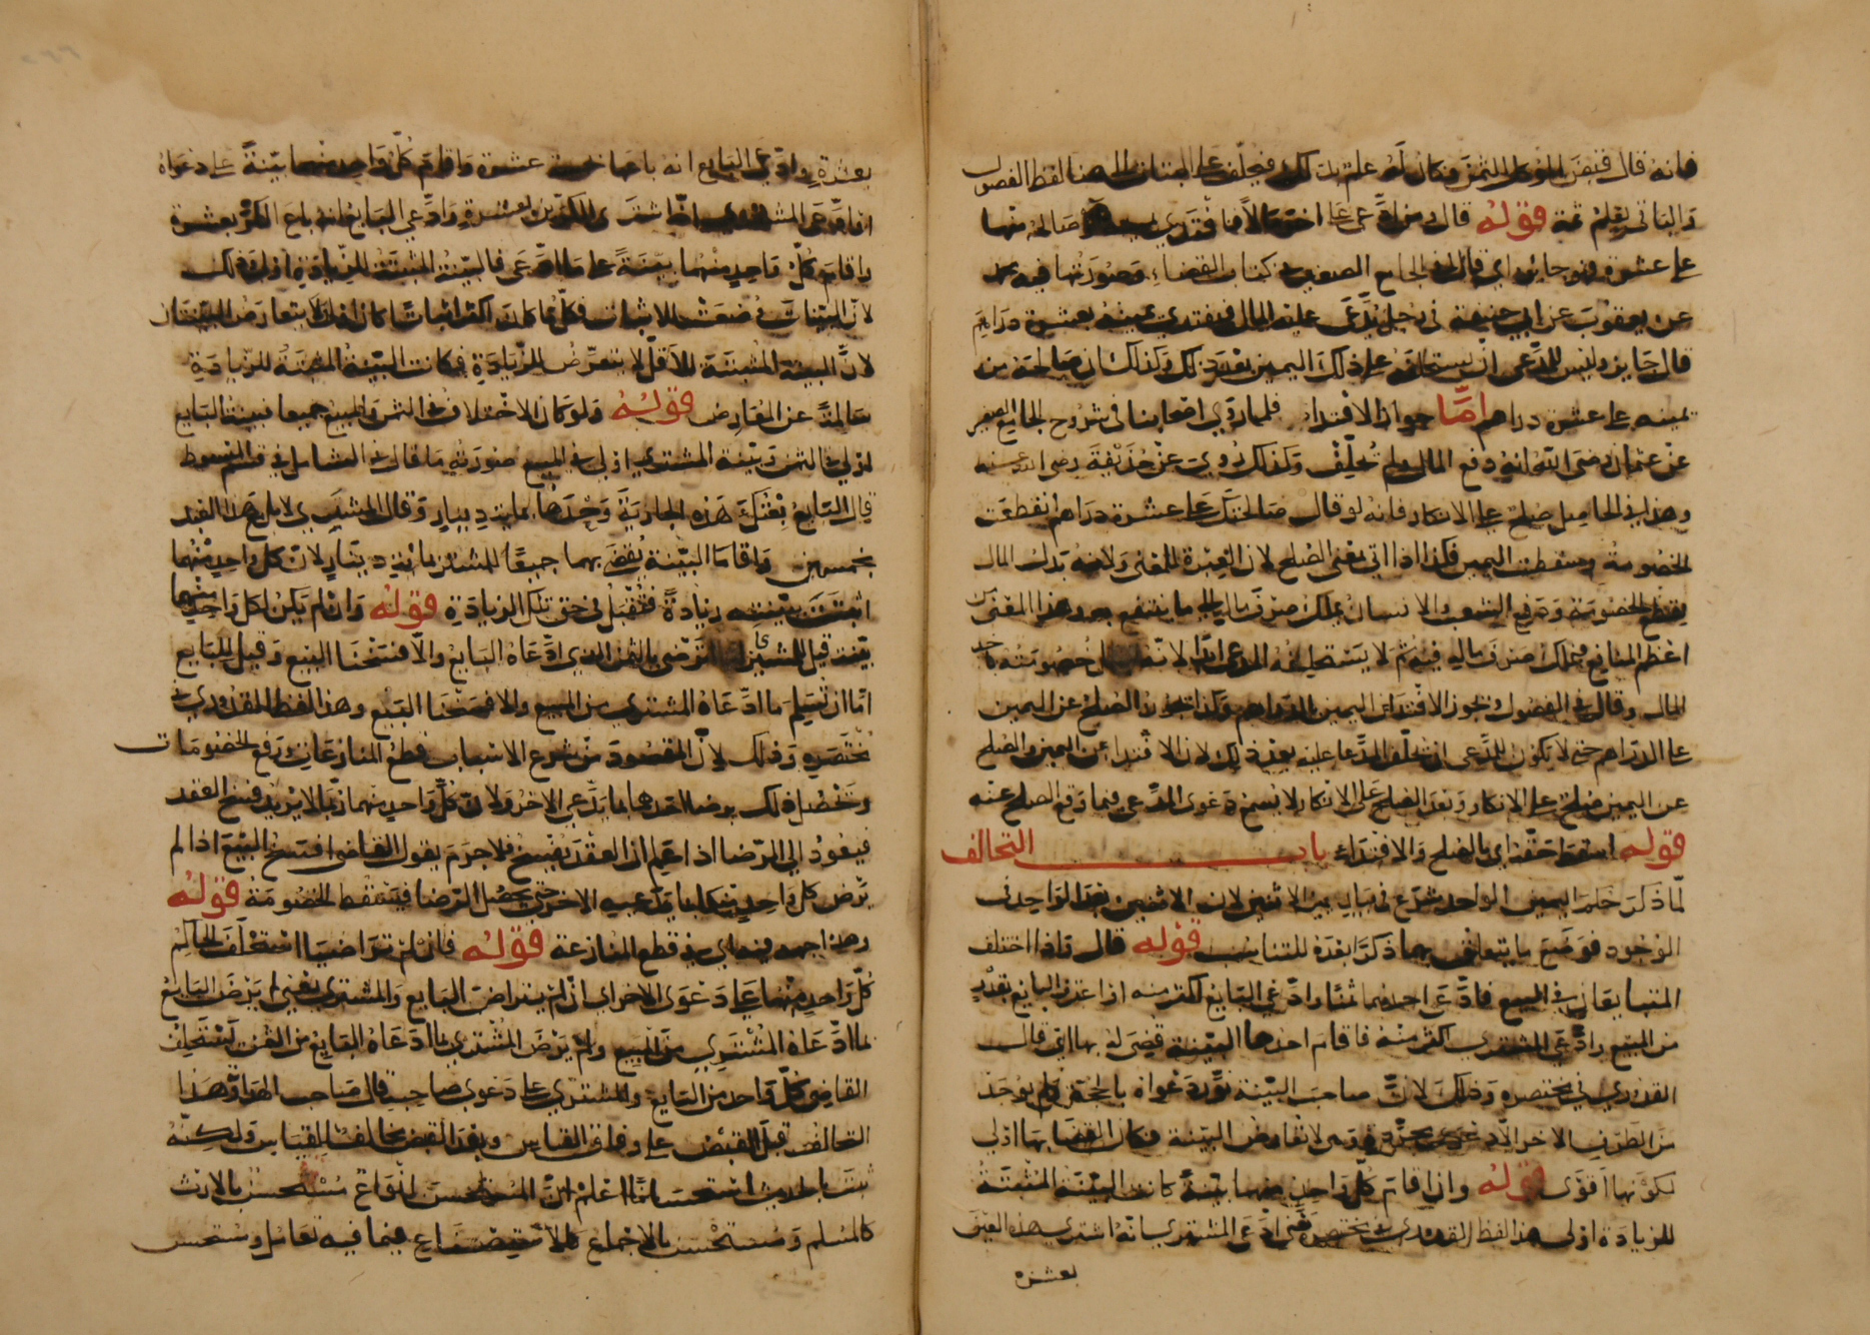 فانه قال قبض الموكل الثمن فكان له علم بذلك فيحلف على البتات الى هنا لفظ الفصول
والباقي يعلم ثمة قوله قال ومن ادعى على اخر مالا فافتدى يمينه او صالحه منها
على عشرة فهو جائز اي قال في الجامع الصغير في كتاب القضاء وصورتها فيه محمد
عن يعقوب عن ابي حنيفة في رجل يدعى عليه المال فيفتدي يمينه بعشرة دراهم
قال جايز وليس للمدعي ان يستحلفه على ذلك اليمين بعد ذلك وكذلك ان صالحه من
يمينه على عشرة دراهم اما جواز الافتداء فلما روى اصحابنا في شروح الجامع الصغير
عن عثمان رضي الله عنه دفع المال ولم يحلف وكذلك روي عن حذيفة رضي الله عنه
وهذا في الحاصل صلح على الانكار فانه لو قال صالحتك على عشرة دراهم انقطعت
الخصومة وسقطت اليمين فكذا اذا اتى بمعنى الصلح لان العبرة للمعنى ولانه بذل المال
لقطع الخصومة ودفع الشغب والانسان يملك صرف ماله الى ما ينتفع به وهذا المعنى من
اعظم المنافع فيملك صرف ماله فيه ثم لا يستحلفه المدعي ابدا لانه ابطل خصومته باخذ
المال وقال في الفصول ويجوز الافتداء عن اليمين بالدراهم وكذا يجوز الصلح عن اليمين
على الدراهم حتى لا يكون للمدعي ان يحلف المدعا عليه بعد ذلك لان الافتداء عن اليمين والصلح
عن اليمين صلح على الانكار وبعد الصلح على الانكار لا يسمع دعوى المدعي فيما وقع الصلح عنه
قوله اسقط حقه اي بالصلح والافتداء باب التحالف
لما ذكر حكم اليمين الواحد شرع في بيان يمين الاثنين لان الاثنين بعد الواحد في
الوجود فوضع ما يتعلق بهما ذكرا بعده للتناسب قوله قال واذا اختلف
المتبايعان في البيع فادعى احدهما ثمنا وادعى البايع اكثر منه او اعترف البايع بقدر
من المبيع وادعى المشتري اكثر منه فاقام احدهما البينة قضى له بها اي قال
القدوري في مختصره وذلك لان صاحب البينة نور دعواه بالحجة ولم يوجد
من الطرف الاخر الا دعوى مجردة وهي لا تعارض البينة فكان القضا بها اولى
لكونها اقوى قوله وان اقام كل واحد منهما بينة كانت البينة المثبتة
للزيادة اولى هذا لفظ القدوري في مختصره يعني ادعى المشتري انه اشترى هذه العين
بعشرة
بعشرة وادعى البايع انه باعها بخمسة عشرة واقام كل واحد منهما بينة على دعواه
او ادعى المشتري انه اشترى الكرين بعشرة وادعى البايع انه باع الكر بعشرة
واقام كل واحد منهما بينة على ما ادعى فالبينة المثبتة للزيادة اولى وذلك
لان البينات وضعت للاثبات فكل ما كان اكثر اثباتا كان اولى ولا يتعارض البينتان
لان البينة المثبتة للاقل لا يتعرض للزيادة فكانت البينة المثبتة للزيادة
سالمة عن المعارض قوله ولو كان الاختلاف في الثمن والمبيع جميعا فبينة البايع
اولى في الثمن وبينة المشتري اولى في المبيع صورته ما قال في الشامل في قسم المبسوط
قال البايع بعتك هذه الجارية وحدها بماية دينار وقال المشتري لا بل مع هذا العبد
بخمسين واقاما البينة يقضى بهما جميعا للمشتري بماية دينار لان كل واحد منهما
اثبتت بينته زيادة فتقبل في حق تلك الزيادة قوله وان لم يكن لكل واحد منهما
بينة قيل للمشتري اما ان ترضى بالثمن الذي ادعاه البايع والا فسخنا البيع وقيل للبايع
اما ان تسلم ما ادعاه المشتري من المبيع والا فسخنا البيع وهذا لفظ القدوري في
مختصره وذلك لان المقصود من شرع الاسباب قطع المنازعات ودفع الخصومات
وتحصل ذلك برضا احدهما بما يدعي الاخر ولان كل واحد منهما ربما لا يريد فسخ العقد
فيعود الى الرضا اذا علم ان العقد يفسخ فلا جرم يقول القاضي افتسخ البيع اذا لم
يرض كل واحد منكما بما يدعيه الاخر حتى يحصل الرضا فيسقط الخصومة قوله
وهذا جهة فيه اي في قطع المنازعة قوله فان لم تراضيا استحلف الحاكم
كل واحد منهما على دعوى الاخر اي ان لم يتراضى البايع والمشتري يعني لم يرض البايع
لما ادعاه المشتري من المبيع ولم يرض المشتري لما ادعاه البايع من الثمن يستحلف
القاضي كل واحد من البايع والمشتري على دعوى صاحبه قال صاحب الهداية وهذا
التحالف قبل القبض على وفاق القياس وبعد القبض مخالف للقياس ولكنه
ثبت بالحديث استحسانا اعلم ان المستحسن انواع مستحسن بالاثر
كالسلم ومستحسن بالاجماع كالاستصناع فيما فيه تعامل ومستحسن